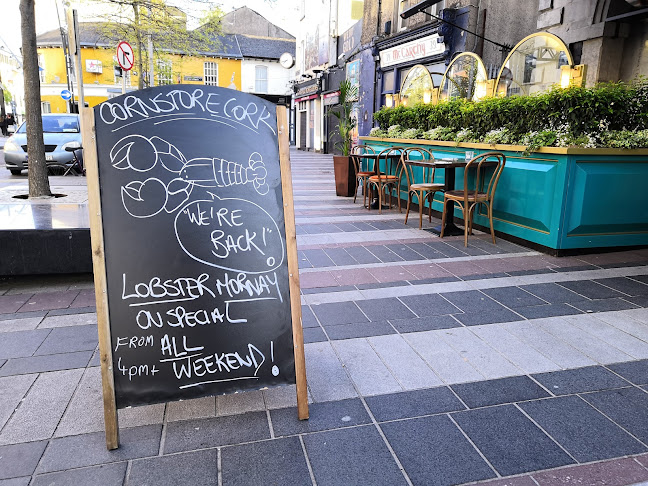 CORNSTORE CORK
"WE'RE
BACK!"
LOBSTER MORNAY
ON SPECIAL
FROM ALL
4pm+ WEEKEND!
McCarthy